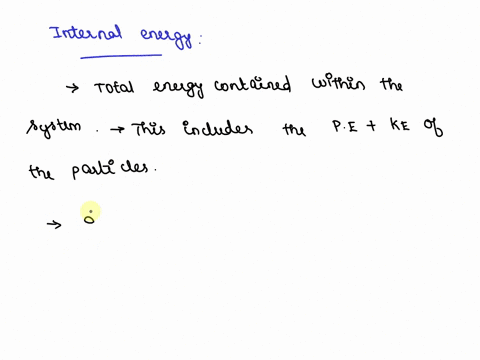 Internal energy :
→ Total energy contained within the
system. → This includes the P.E + KE of
the particles.
→